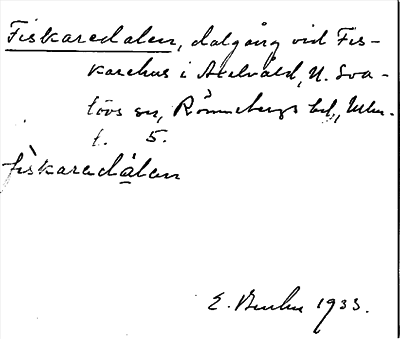 Fiskaredalen, dalgång vid Fis-
karehus i Axelvåld, N. Sva-
lövs sn, Rönnebergs hd, Mlm.
l. 5.
fiskaredalen
E. 1933.